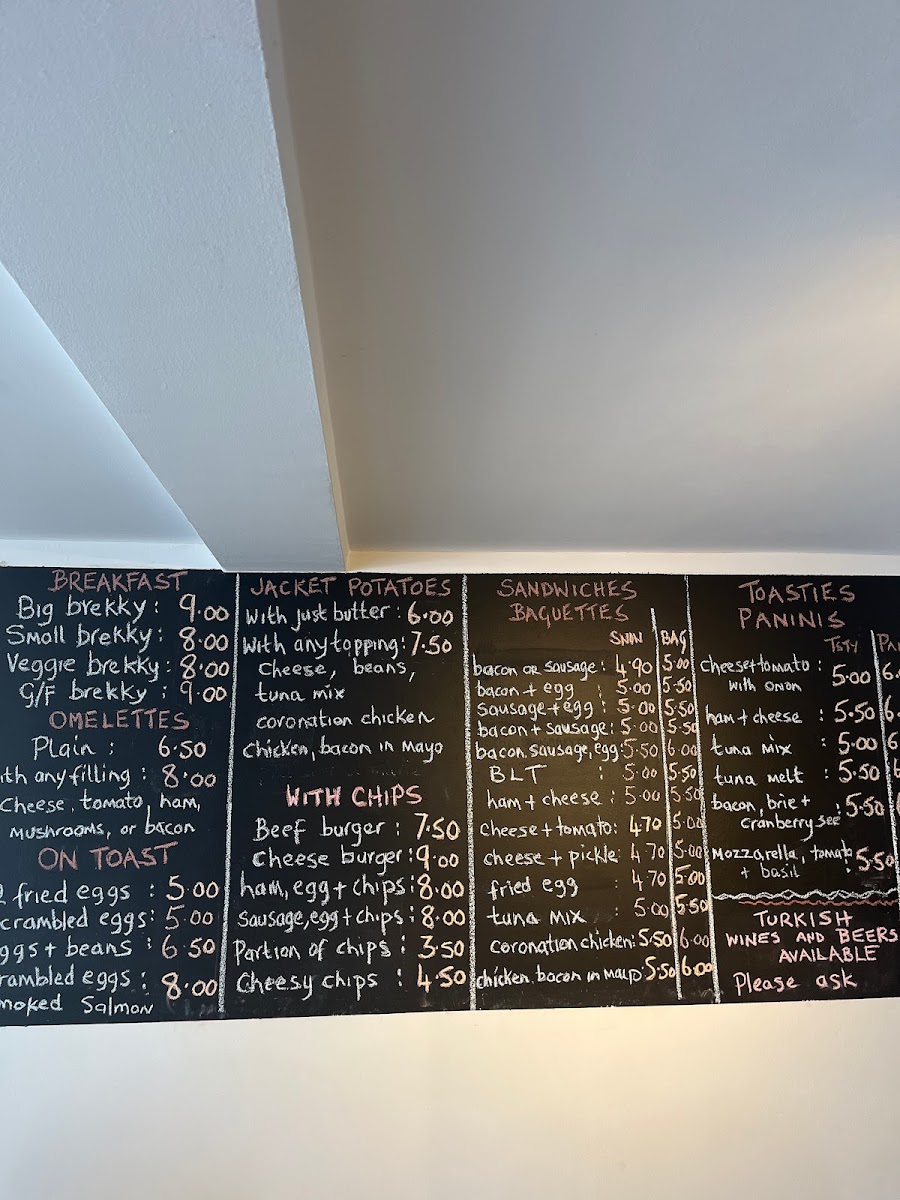 BREAKFAST
Big brekky: 9.00
Small brekky: 8.00
Veggie brekky: 8.00
G/F brekky: 9.00
OMELETTES
Plain: 6.50
th any filling: 8.00
Cheese, tomato, ham,
mushrooms, or bacon
ON TOAST
2 fried eggs: 5.00
crambled eggs: 5.00
ggs + beans: 6.50
rambled eggs: 8.00
moked Salmon
JACKET POTATOES
With just butter: 6.00
With any topping: 7.50
Cheese, beans,
tuna mix
coronation chicken
chicken, bacon in mayo
WITH CHIPS
Beef burger: 7.50
Cheese burger: 9.00
ham, egg + chips: 8.00
Sausage, egg + chips: 8.00
Partion of chips: 3.50
Cheesy chips: 4.50
SANDWICHES
BAGUETTES
SWN BAG
bacon or sausage: 4.90 5.00
bacon + egg: 5.00 5.50
Sausage + egg: 5.00 5.50
bacon + sausage: 5.00 5.50
bacon, sausage, egg: 5.50 6.00
BLT: 5.00 5.50
ham + cheese: 5.00 5.50
cheese + tomato: 4.70 5.00
cheese + pickle: 4.70 5.00
fried egg: 4.70 5.00
tuna mix: 5.00 5.50
coronation chicken: 5.50 6.00
chicken bacon in mayo 5.50 6.00
TOASTIES
PANINIS
TSTY PA
cheese + tomato: 5.00 6.
with onion
ham + cheese: 5.50 6.
tuna mix: 5.00 6
tuna melt: 5.50
bacon, brie +: 5.50
cranberry sce
Mozzarella, tomato: 5.50
+ basil
TURKISH
WINES AND BEERS
AVAILABLE
Please ask